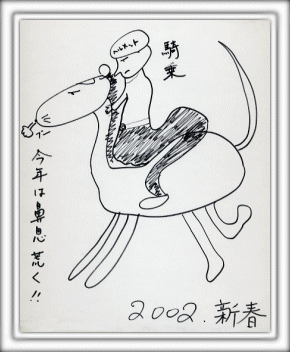 ヘルメット
騎乗
今年は鼻息荒く!!
2002.新春